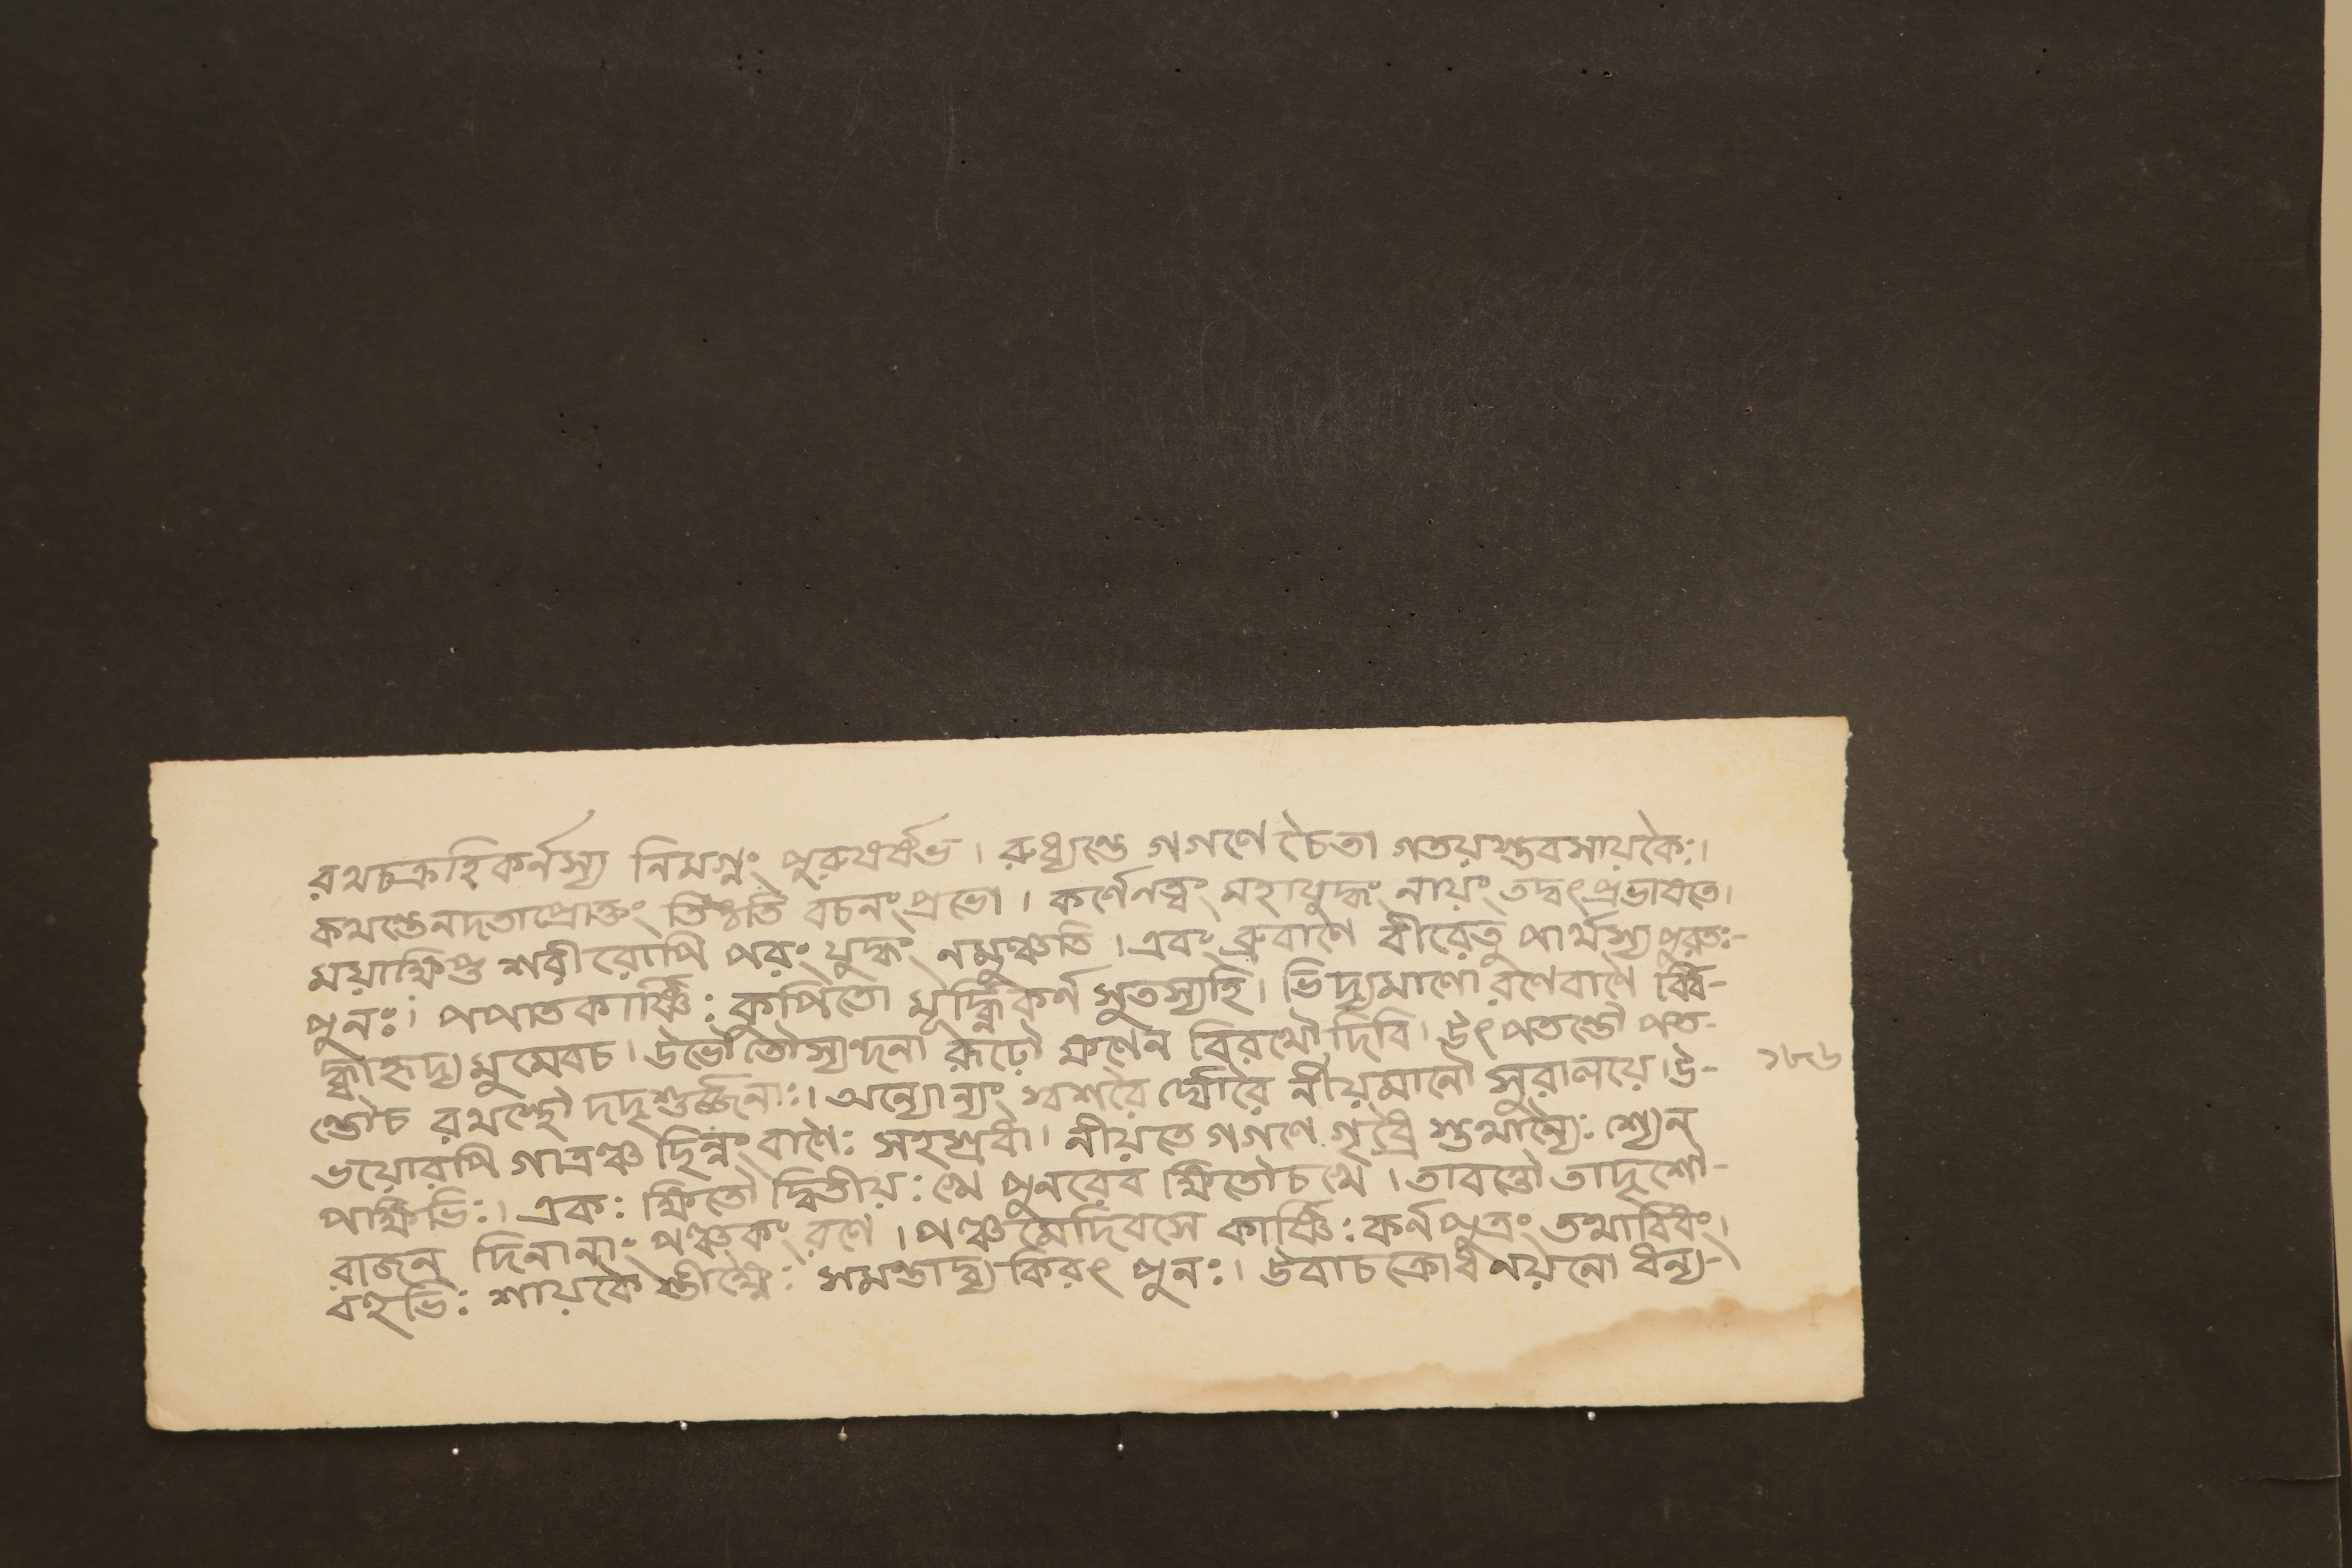 রথচক্রহিকর্নস্য নিমগ্নং পুরুষর্ষভ। রুধ্যন্তে গগণে চৈতা গতয়স্তবসায়কৈঃ।
কথন্তেনদতাপ্রোক্তং তিষ্ঠতি বচনং প্রভো। কর্ণেনত্বং মহাযুদ্ধং নায়ং তদ্বৎপ্রভাষতে।
ময়াক্ষিপ্ত শরীরোপি পরং যুদ্ধং নমুঞ্চতি। এবং ব্রুবাণে বীরেতু পার্থস্যপুরতঃ-
পুনঃ। পপাতকার্ষ্ণিঃ কুপিতো মূর্দ্ধ্নিকর্ণ সুতস্যহি। ভিদ্যমাণো রণেবাণৈ র্ব্বি-
দ্ধ্বাহৃদ্য মুমেবচ। উভৌতৌস্যন্দনা রূঢৌ ক্ষণেন বিরথৌ দিবি। উৎপতন্তৌ পত-
ন্তৌচ রথস্থৌ দদৃশুর্জ্জনাঃ। অন্যোন্যং স্বশরৈ র্ঘোরৈ র্নীয়মানৌ সুরালয়ে। উ-
ভয়োরপি গাত্রঞ্চ ছিন্নং বাণৈঃ সহস্রধা। নীয়তে গগণে গৃধ্রৈ স্তথান্যৈঃ শ্যেন
পক্ষিভিঃ। একঃ ক্ষিতৌ দ্বিতীয়ঃ খে পুনরেব ক্ষিতৌচখে। তাবন্তৌ তাদৃশৌ-
রাজন্ দিনানাং পঞ্চকং রণে। পঞ্চমেদিবসে কার্ষ্ণিঃ কর্নপুত্রং তথাবিধং।
বহুভিঃ শায়কৈ স্তীক্ষ্ণৈঃ সমন্তাদ্ব্য কিরৎ পুনঃ। উবাচক্রোধনয়নো ধন্য-
১৮৬